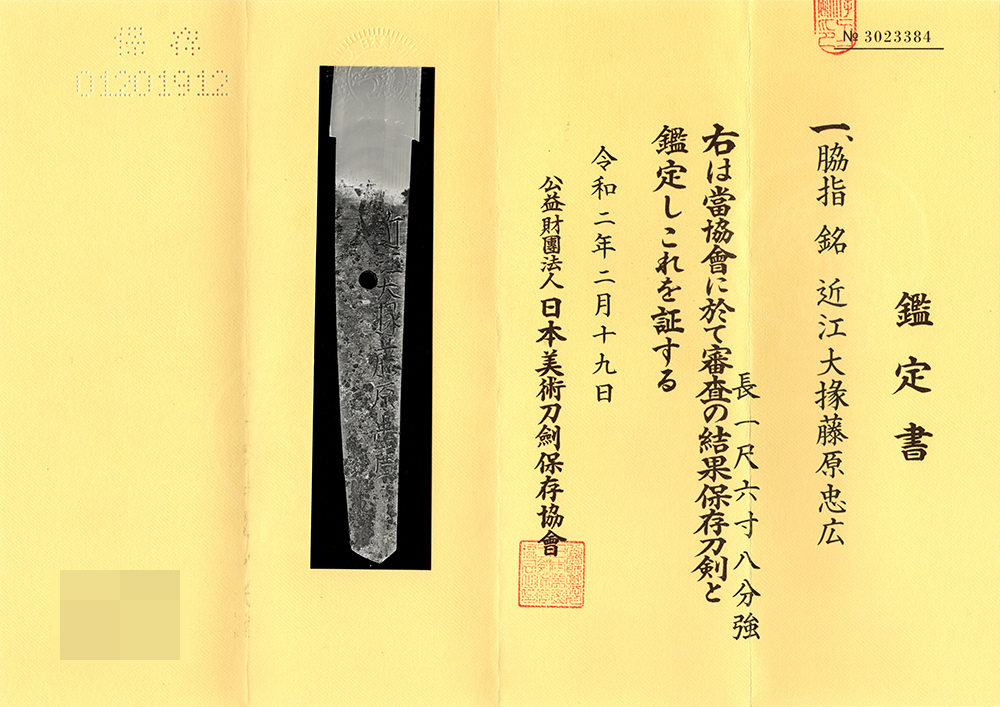 № 3023384
鑑定書
一、脇指 銘 近江大掾藤原忠広
長一尺六寸八分強
右は當協會に於て審査の結果保存刀剣と
鑑定しこれを証する
令和二年二月十九日
公益財團法人日本美術刀劍保存協會
近江大掾藤原忠廣
保存
01201912